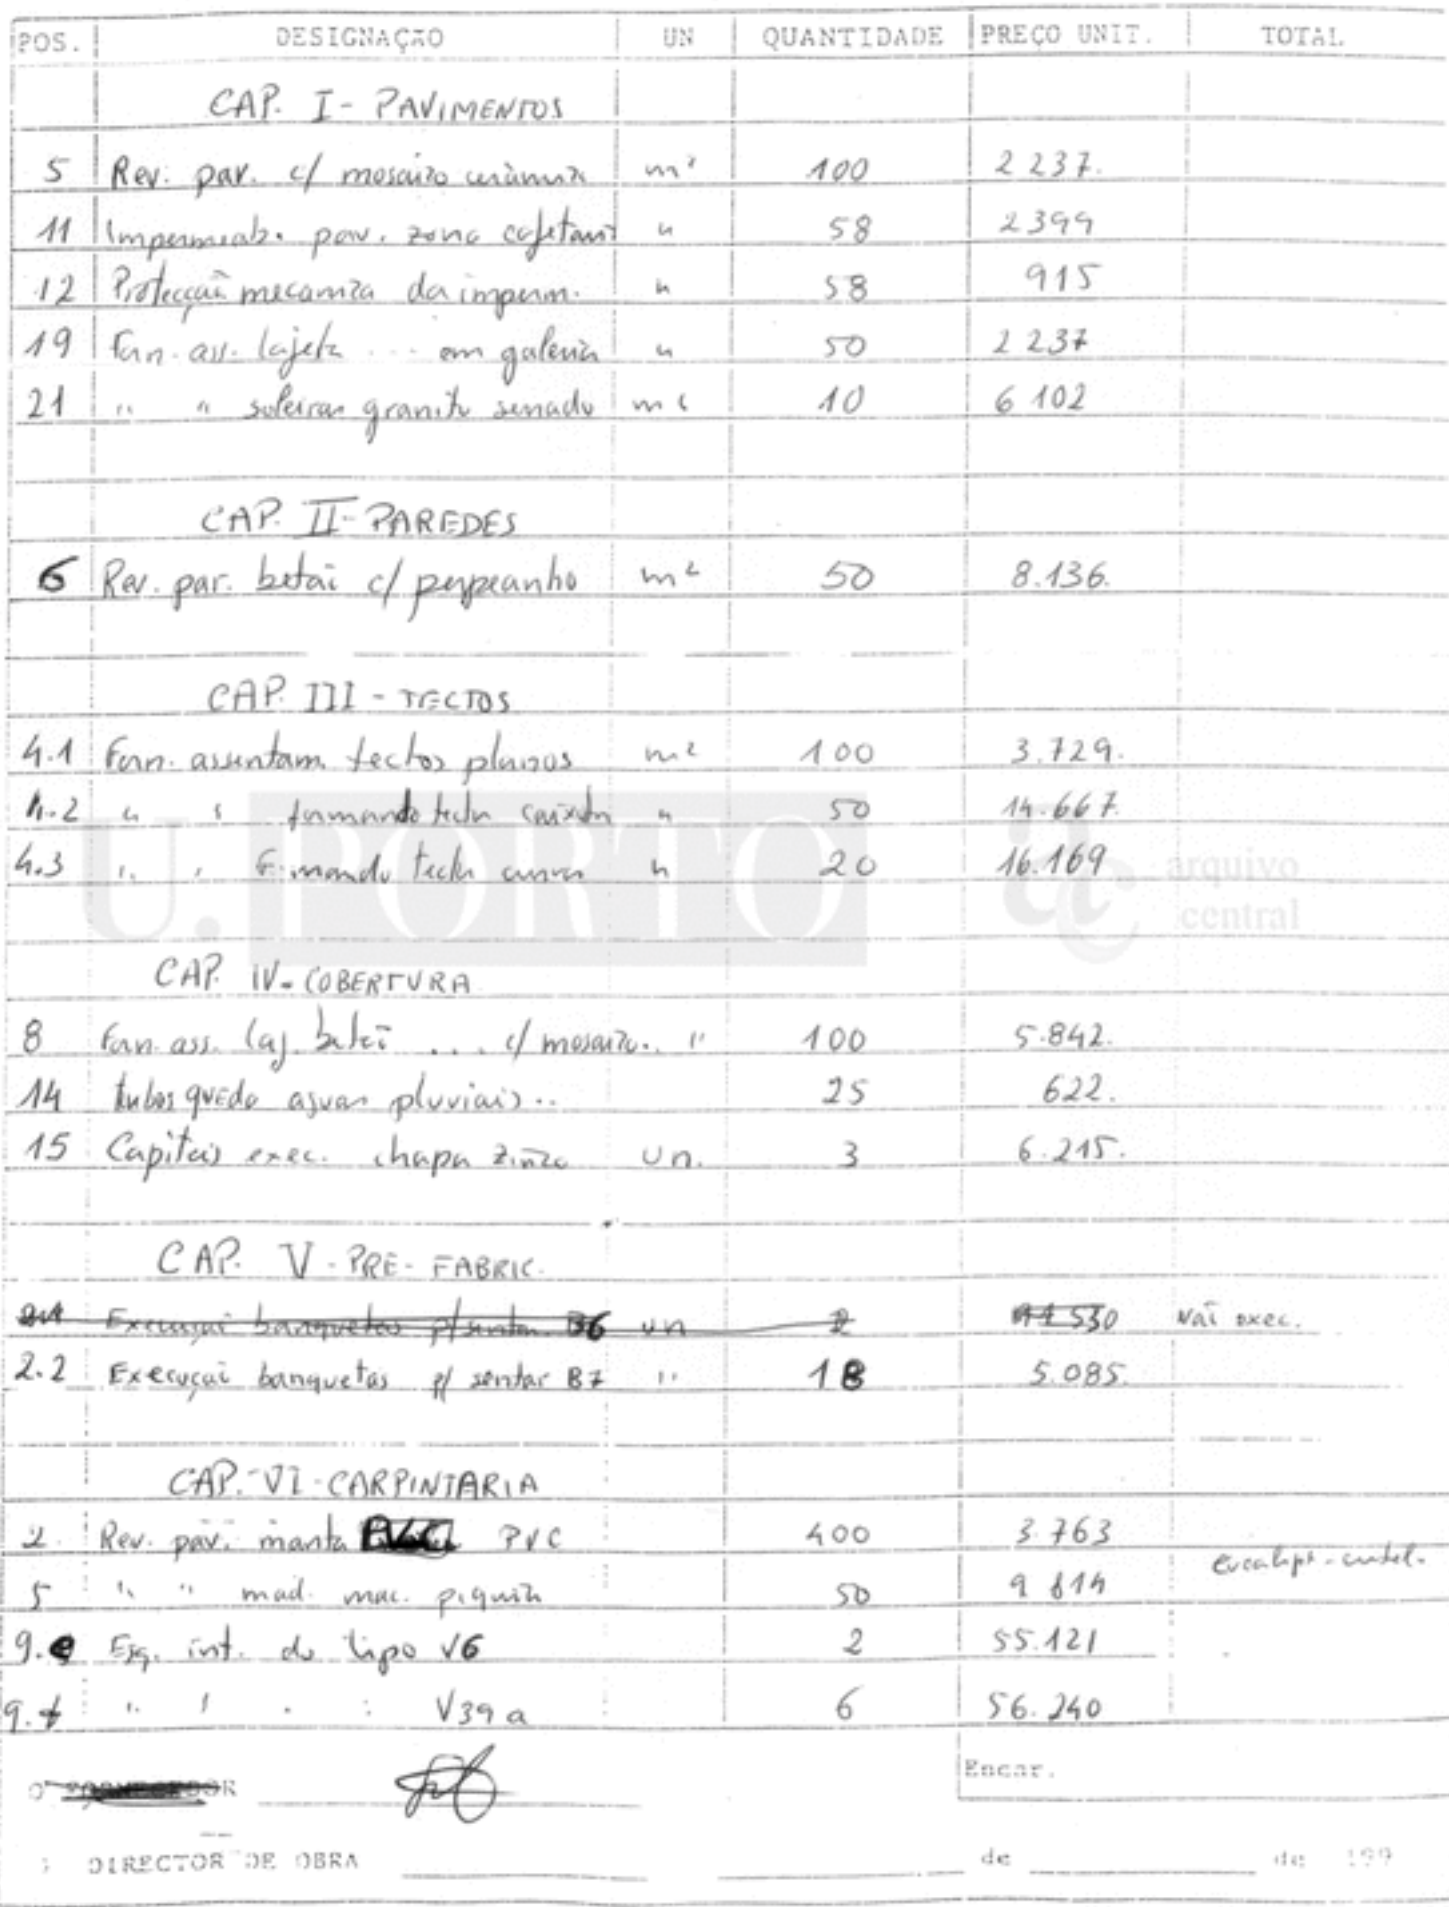 POS. DESIGNAÇÃO UN QUANTIDADE PREÇO UNIT. TOTAL
CAP. I - PAVIMENTOS
5 Rev. pav. c/ mosaico cerâmico m² 100 2 237.
11 Impermeab. pav. zona cafetaria " 58 2399
12 Protecção mecanica da imperm. " 58 915
19 Forn. ass. lajeta ... em galeria " 50 2 237
21 " " soleiras granito serrado ml 10 6 102
CAP. II - PAREDES
6 Rev. par. betão c/ perpeanho m² 50 8.136.
CAP. III - TECTOS
4.1 Forn. assentam. tectos planos m² 100 3.729.
4.2 " " formando tecto caixão " 50 14.667.
4.3 " " formando tecto curvo " 20 16.169
U. PORTO ac arquivo central
CAP. IV - COBERTURA
8 Forn. ass. laj. betão ... c/ mosaico.. " 100 5.842.
14 tubos queda aguas pluviais.. 25 622.
15 Capitéis exec. chapa zinco un. 3 6.215.
CAP. V - PRE-FABRIC.
2.1 Execução banquetas p/ sentar B6 un 2 11 530 Não exec.
2.2 Execução banquetas p/ sentar B7 " 18 5.085.
CAP. VI - CARPINTARIA
2 Rev. pav. manta PVC 400 3.763
5 " " mad. mac. piquiá 50 9 614
9.e Esq. int. do tipo V6 2 55.121
9.f " " . : V39a 6 56.240
Encar.
O
DIRECTOR DE OBRA de de 199